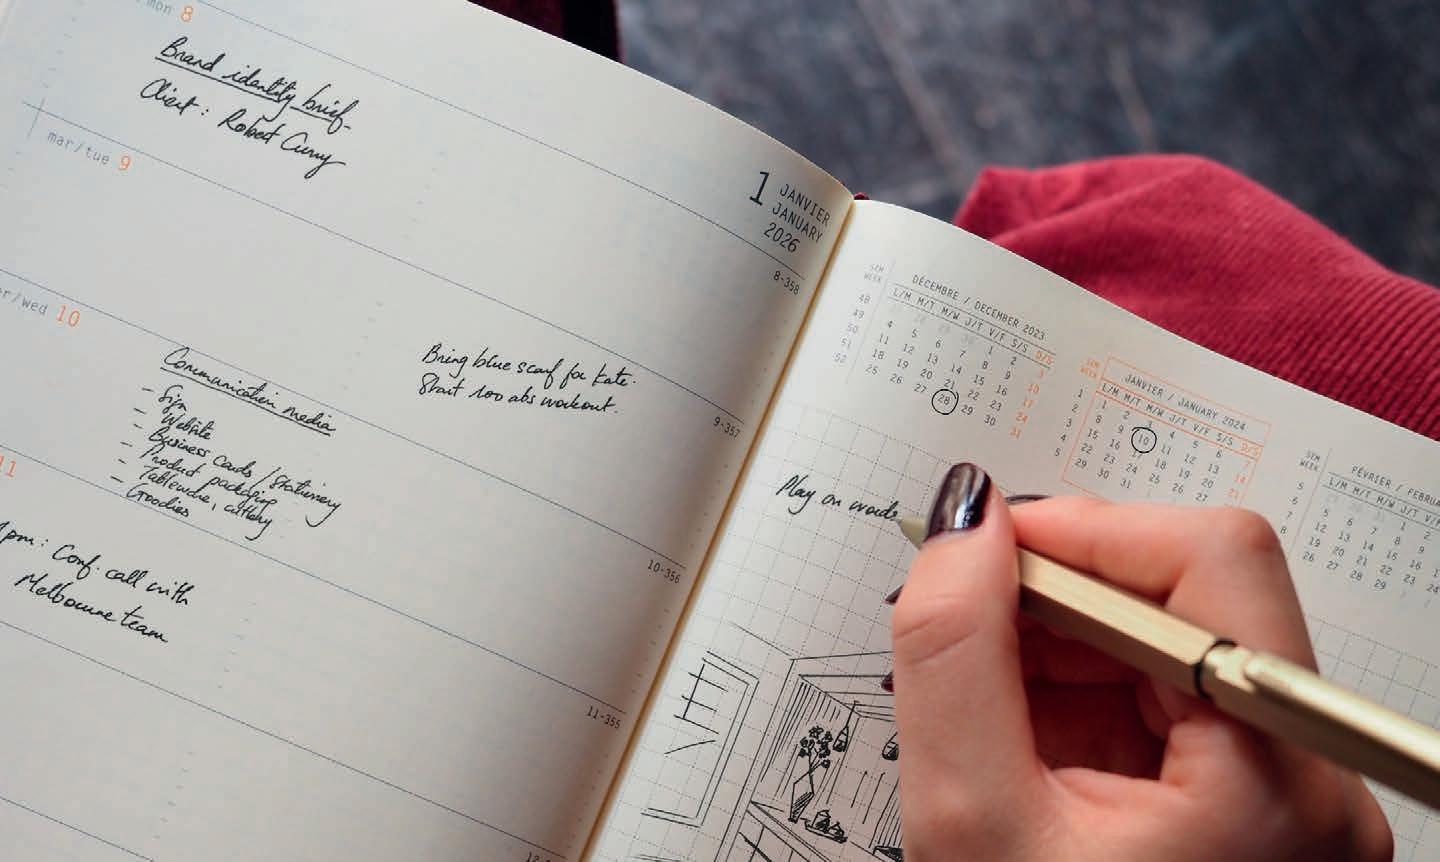 mon 8
Brand identity brief
Client : Robert Curry
1 JANVIER
JANUARY
2026
8-358
mar/tue 9
9-357
/wed 10
Communication media
- Sign
- Website
- Business cards / stationery
- Product packaging
- Tableware, cutlery
- Goodies
Bring blue scarf for Kate.
Start 100 abs workout.
10-356
11
pm : Conf. call with
Melbourne team
11-355
SEM
WEEK
DÉCEMBRE / DECEMBER 2023
L/M M/T M/W J/T V/F S/S D/S
48 1 2
49 4 5 6 7 8 9 10
50 11 12 13 14 15 16 17
51 18 19 20 21 22 23 24
52 25 26 27 28 29 30 31
SEM
WEEK
JANVIER / JANUARY 2024
L/M M/T M/W J/T V/F S/S D/S
1 1 2 3 4 5 6 7
2 8 9 10 11 12 13 14
3 15 16 17 18 19 20 21
4 22 23 24 25 26 27
5 29 30 31
SEM
WEEK
FÉVRIER /
L/M M/T M/W J/T V/F S/S
5 1 2
6 5 6 7 8 9
7 12 13 14 15 16
8 19 20 21 22 23 24
26 27 28 29
Play on words